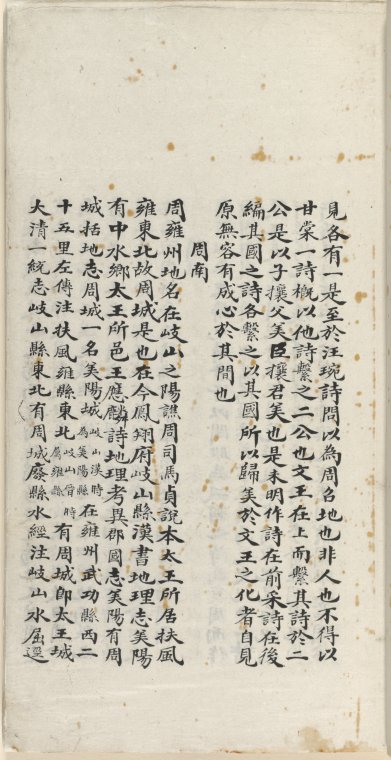 見各有一是至於汪琬詩問以為周名地也非人也不得以
甘棠一詩概以他詩繫之二公也文王在上而繫其詩於二
公是以子攘父美臣攘君美也是未明作詩在前采詩在後
編其國之詩各繫之以其國所以歸美於文王之化者自見
原無容有成心於其間也
周南
周雍州地名在岐山之陽譙周司馬貞說本太王所居扶風
雍東北故周城是也在今鳳翔府岐山縣漢書地理志美陽
有中水鄉太王所邑王應麟詩地理考具郡國志美陽有周
城括地志周城一名美陽城岐山漢時為美陽縣在雍州武功縣西二
十五里左傳注扶風雍縣東北岐山晉時為雍縣有周城即太王城
大清一統志岐山縣東北有周城廢縣水經注岐山水屈逕